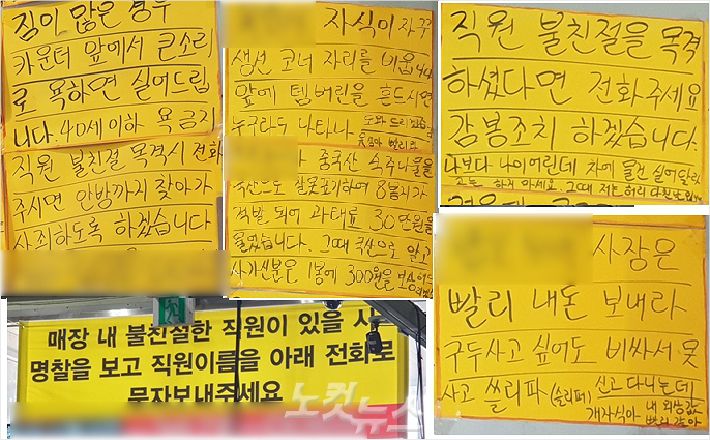 짐이 많은 경우
카운터 앞에서 큰소리
로 욕하면 실어드립
니다. 40세이하 욕 금지
직원 불친절 목격시 전화
주시면 안방까지 찾아가
사죄하도록 하겠습니다
자식이 자꾸
생선 코너 자리를 비웁니다
앞에 템버린을 흔드시면
누구라두 나타나 도와 드리겠습
빨리와
중국산 숙주나물을
국산으로 잘못표기하여 8봉지가
적발 되어 과태료 30만원을
물었습니다. 그때 국산으로 알고
사가신분은 1봉에 300원을 보상
직원 불친절을 목격
하셨다면 전화주세요
감봉조치 하겠습니다.
나보다 나이어린데 차에 물건 실어달라
하지 마세요. 그때 저는 허리 다친
사장은
빨리 내돈 보내라
구두사고 싶어도 비싸서 못
사고 쓸리파 (슬리퍼) 신고 다니는데
개자식아 내 외상값
빨리 갚아
매장 내 불친절한 직원이 있을 시
명찰을 보고 직원이름을 아래 전화로
문자보내주세요
노컷뉴스